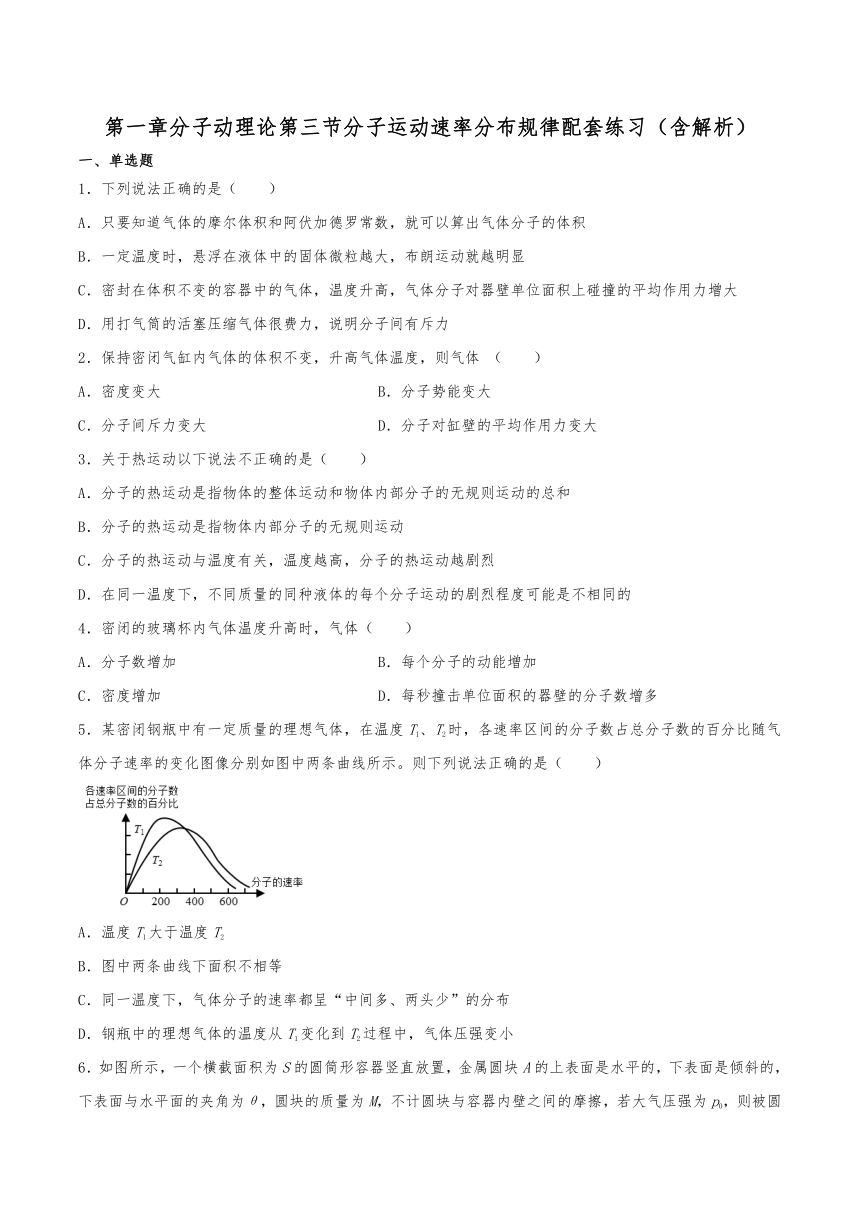 第一章分子动理论第三节分子运动速率分布规律配套练习（含解析）
一、单选题
1．下列说法正确的是（　　）
A．只要知道气体的摩尔体积和阿伏加德罗常数，就可以算出气体分子的体积
B．一定温度时，悬浮在液体中的固体微粒越大，布朗运动就越明显
C．密封在体积不变的容器中的气体，温度升高，气体分子对器壁单位面积上碰撞的平均作用力增大
D．用打气筒的活塞压缩气体很费力，说明分子间有斥力
2．保持密闭气缸内气体的体积不变，升高气体温度，则气体 （　　）
A．密度变大　　B．分子势能变大
C．分子间斥力变大　　D．分子对缸壁的平均作用力变大
3．关于热运动以下说法不正确的是（　　）
A．分子的热运动是指物体的整体运动和物体内部分子的无规则运动的总和
B．分子的热运动是指物体内部分子的无规则运动
C．分子的热运动与温度有关，温度越高，分子的热运动越剧烈
D．在同一温度下，不同质量的同种液体的每个分子运动的剧烈程度可能是不相同的
4．密闭的玻璃杯内气体温度升高时，气体（　　）
A．分子数增加　　B．每个分子的动能增加
C．密度增加　　D．每秒撞击单位面积的器壁的分子数增多
5．某密闭钢瓶中有一定质量的理想气体，在温度T₁、T₂时，各速率区间的分子数占总分子数的百分比随气
体分子速率的变化图像分别如图中两条曲线所示。则下列说法正确的是（　　）
各速率区间的分子数
占总分子数的百分比
T₁
T₂
分子的速率
O 200 400 600
A．温度T₁大于温度T₂
B．图中两条曲线下面积不相等
C．同一温度下，气体分子的速率都呈“中间多、两头少”的分布
D．钢瓶中的理想气体的温度从T₁变化到T₂过程中，气体压强变小
6．如图所示，一个横截面积为S的圆筒形容器竖直放置，金属圆块A的上表面是水平的，下表面是倾斜的，
下表面与水平面的夹角为θ，圆块的质量为M，不计圆块与容器内壁之间的摩擦，若大气压强为p₀，则被圆